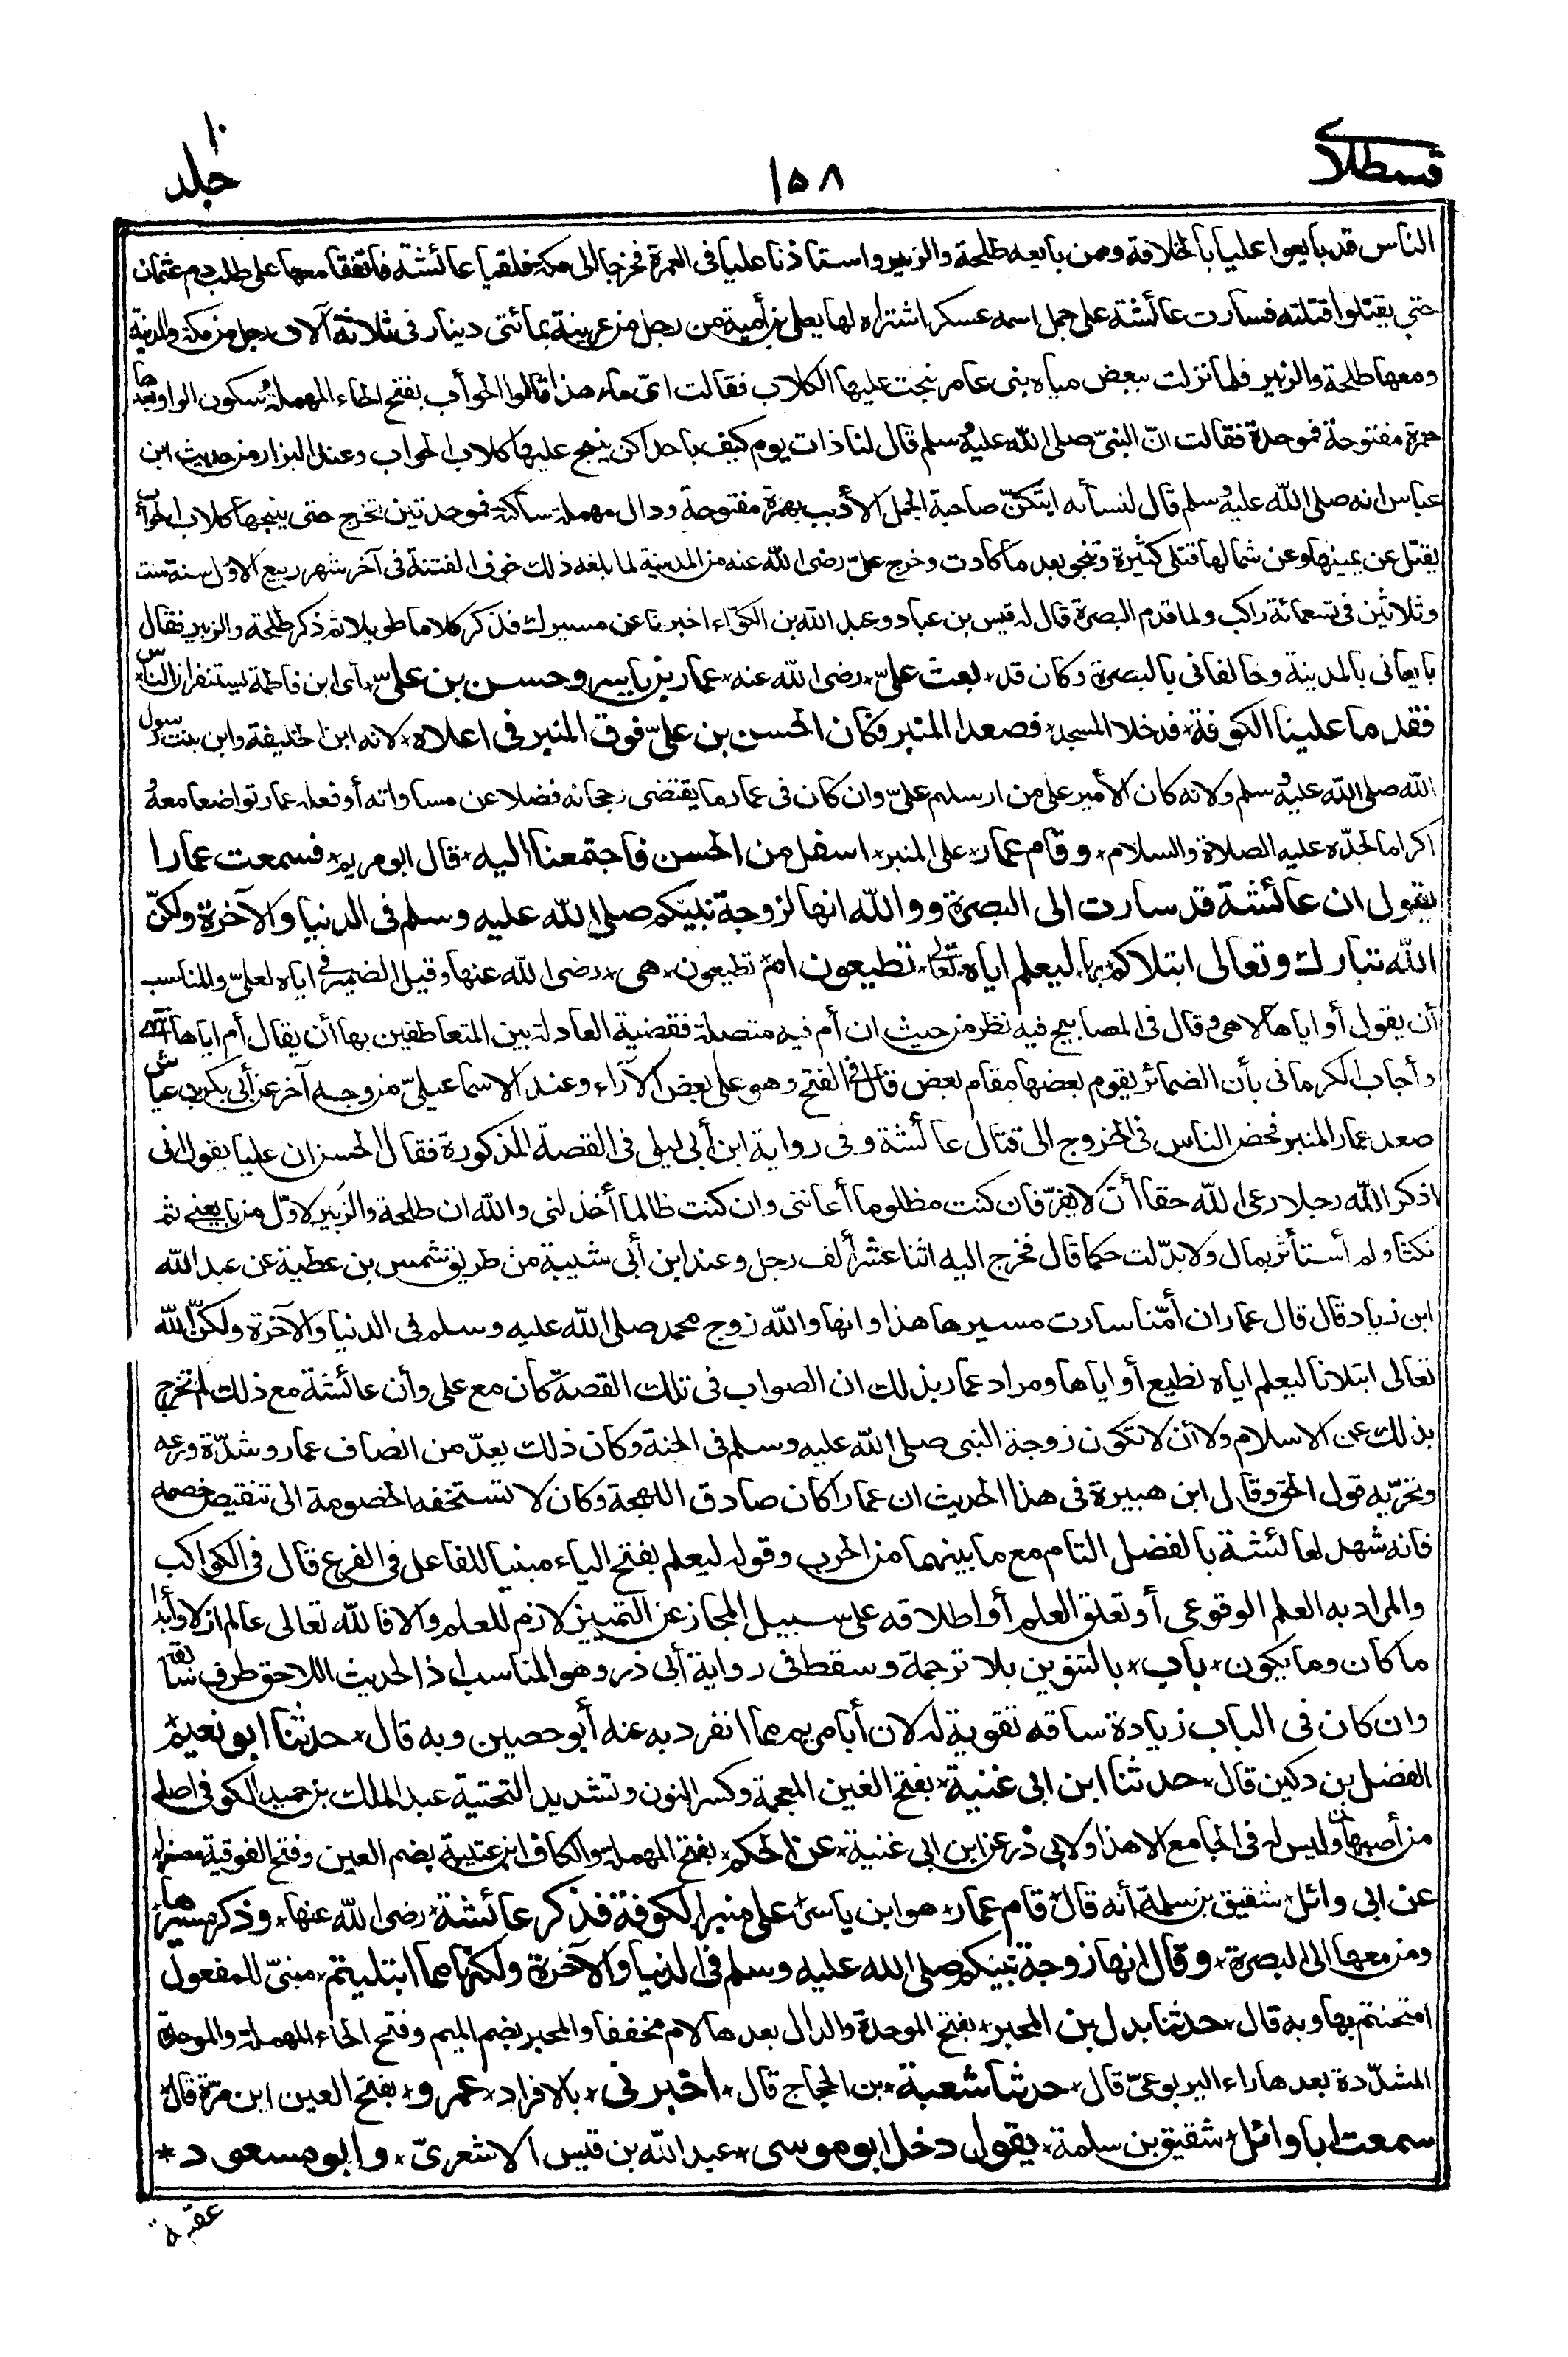 قسطلانی
١٥٨
جلد ١٠
الناس قد بايعوا عليا بالخلافة وممن بايعه طلحة والزبير واستأذنا عليا فى العمرة فخرجا الى مكة فلقيا عائشة فاتفقا معها على طلب دم عثمان
حتى يقتلوا قتلته فسارت عائشة على جمل اسمه عسكر اشتراه لها يعلى بن أمية من رجل من عرينة بمائتى دينار فى ثلاثة آلاف رجل من مكة والمدينة
ومعها طلحة والزبير فلما نزلت ببعض مياه بنى عامر نبحت عليها الكلاب فقالت اىّ ماء هذا قالوا الحوأب بفتح الحاء المهملة وسكون الواو وبعدها
همزة مفتوحة فموحدة فقالت انّ النبىّ صلى الله عليه وسلم قال لنا ذات يوم كيف باحداكن ينبح عليها كلاب الحواب وعند البزار من حديث ابن
عباس انه صلى الله عليه وسلم قال لنسائه ايتكنّ صاحبة الجمل الأدبب بهمزة مفتوحة ودال مهملة ساكنة فموحدتين تخرج حتى ينبحها كلاب الحوأب
يقتل عن يمينها وعن شمالها قتلى كثيرة وتنجو بعد ما كادت وخرج علىّ رضى الله عنه من المدينة لما بلغه ذلك خوف الفتنة فى آخر شهر ربيع الاوّل سنة ست
وثلاثين فى تسعمائة راكب ولما قدم البصرة قال له قيس بن عباد وعبد الله بن الكوّاء اخبرنا عن مسيرك فذكر كلاما طويلا ثم ذكر طلحة والزبير فقال
بايعانى بالمدينة وخالفانى بالبصرة وكان قد * بعث علىّ * رضى الله عنه * عمار بن ياسر وحسن بن علىّ * أى ابن فاطمة ليستنفران الناس *
فقدما علينا الكوفة * فدخلا المسجد * فصعدا المنبر فكان الحسن بن علىّ فوق المنبر فى اعلاه * لانه ابن الخليفة وابن بنت رسول
الله صلى الله عليه وسلم ولانه كان الأمير على من ارسلهم علىّ وان كان فى عمار ما يقتضى رجحانه فضلا عن مساواته أو فعله عمار تواضعا معه و
اكراما لجدّه عليه الصلاة والسلام * وقام عمار * على المنبر * اسفل من الحسن فاجتمعنا اليه * قال ابو مريم * فسمعت عمارا
يقول ان عائشة قد سارت الى البصرة ووالله انها لزوجة نبيكم صلى الله عليه وسلم فى الدنيا والآخرة ولكنّ
الله تبارك وتعالى ابتلاكم * بها * ليعلم اياه * تعالى * تطيعون ام * تطيعون * هى * رضى الله عنها وقيل الضمير فى اياه لعلىّ والمناسب
أن يقول أو اياها لا هى وقال فى المصابيح فيه نظر من حيث ان أم فيه متصلة فقضية المعادلة بين المتعاطفين بها أن يقال أم اياها انتهى
وأجاب الكرمانى بأن الضمائر يقوم بعضها مقام بعض قال فى الفتح وهو على بعض الآراء وعند الاسماعيلىّ من وجه آخر عن أبى بكر بن عياش
صعد عمار المنبر فحض الناس فى الخروج الى قتال عائشة وفى رواية ابن أبى ليلى فى القصة المذكورة فقال الحسن ان عليا يقول انى
اذكر الله رجلا رعى لله حقا أن لا يفرّ فان كنت مظلوما أعاننى وان كنت ظالما أخذلنى والله ان طلحة والزبير لاوّل من بايعنى ثم
نكثا ولم أستأثر بمال ولا بدّلت حكما قال فخرج اليه اثنا عشر ألف رجل وعند ابن أبى شيبة من طريق شمس بن عطية عن عبد الله
ابن زياد قال قال عمار ان أمّنا سارت مسيرها هذا وانها والله زوج محمد صلى الله عليه وسلم فى الدنيا والآخرة ولكنّ الله
تعالى ابتلانا ليعلم اياه نطيع أو اياها ومراد عمار بذلك ان الصواب فى تلك القصة كان مع على وأن عائشة مع ذلك لم تخرج
بذلك عن الاسلام ولا أن لا تكون زوجة النبى صلى الله عليه وسلم فى الجنة وكان ذلك يعدّ من انصاف عمار وشدّة ورعه
وتحرّيه قول الحق وقال ابن هبيرة فى هذا الحديث ان عمارا كان صادق اللهجة وكان لا تستخفه الخصومة الى تنقيص خصمه
فانه شهد لعائشة بالفضل التام مع ما بينهما من الحرب وقوله ليعلم بفتح الياء مبنيا للفاعل فى الفرع قال فى الكواكب
والمراد به العلم الوقوعى أو تعلق العلم أو اطلاقه على سبيل المجاز عن التمييز لازم للعلم والا فالله تعالى عالم ازلا وأبدا
ما كان وما يكون * باب * بالتنوين بلا ترجمة وسقط فى رواية أبى ذر وهو المناسب اذ الحديث اللاحق طرف سابقه
وان كان فى الباب زيادة ساقه تقوية له لان أبا مريم مما انفرد به عنه أبو حصين وبه قال * حدثنا ابو نعيم *
الفضل بن دكين قال * حدثنا ابن ابى غنية * بفتح الغين المعجمة وكسر النون وتشديد التحتية عبد الملك بن حميد الكوفى اصله
من أصبهان وليس له فى الجامع الا هذا ولابى ذر عن ابن ابى غنية * عن الحكم * بفتح المهملة والكاف ابن عتيبة بضم العين وفتح الفوقية مصغرا *
عن ابى وائل * شقيق بن سلمة أنه قال * قام عمار * هو ابن ياسر * على منبر الكوفة فذكر عائشة * رضى الله عنها * وذكر مسيرها *
ومن معها الى البصرة * وقال انها زوجة نبيكم صلى الله عليه وسلم فى الدنيا والآخرة ولكنها مما ابتليتم * مبنىّ للمفعول
امتحنتم بها وبه قال * حدثنا بدل بن المحبر * بفتح الموحدة والدال بعدها لام مخففا والمحبر بضم الميم وفتح الحاء المهملة والموحدة
المشدّدة بعدها راء اليربوعىّ قال * حدثنا شعبة * بن الحجاج قال * اخبرنى * بالافراد * عمرو * بفتح العين ابن مرّة قال *
سمعت ابا وائل * شقيق بن سلمة * يقول دخل ابو موسى * عبد الله بن قيس الاشعرىّ * وابو مسعود *
عقبة